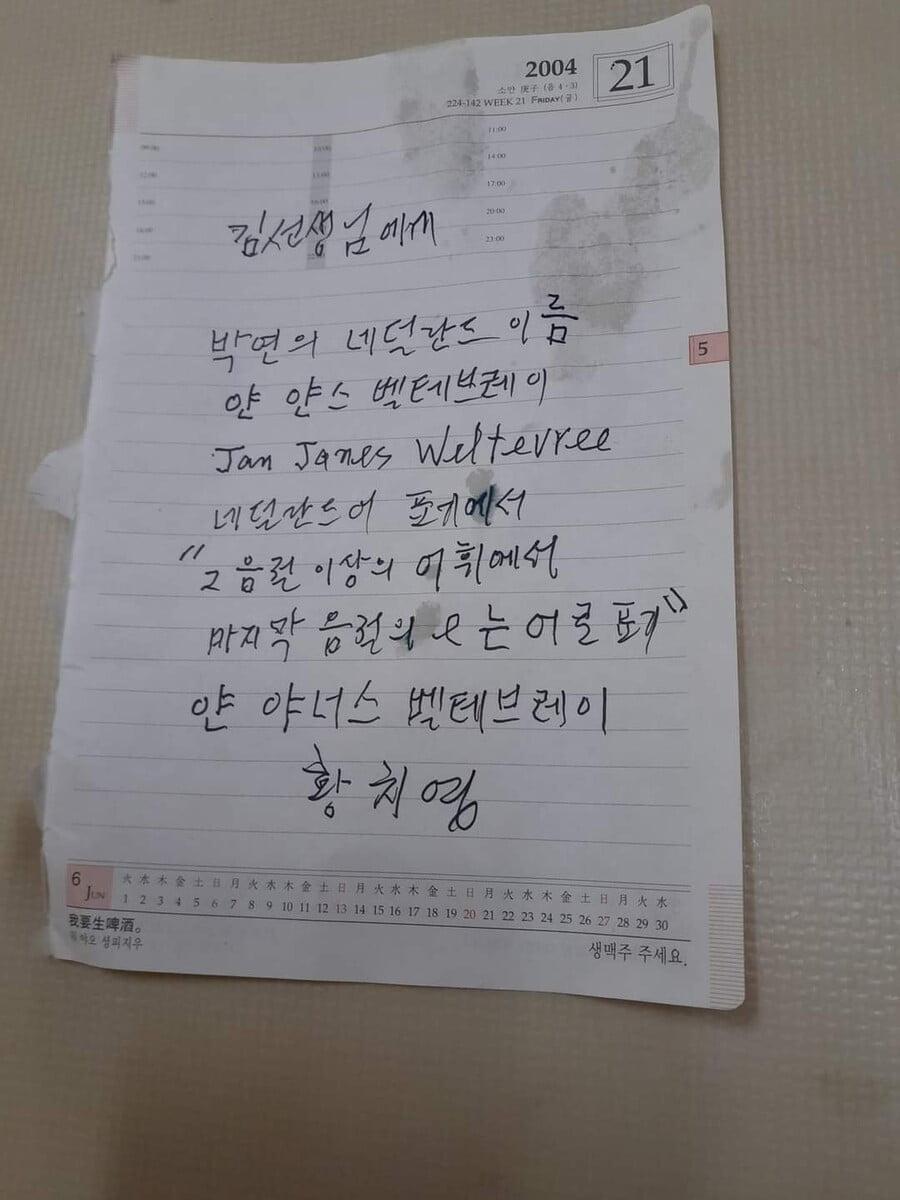 2004 21
소만 庚子 (음 4·3)
224-142 WEEK 21 FRIDAY(금)
09:00 10:00 11:00
12:00 13:00 14:00
15:00 16:00 17:00
20:00
21:00 23:00
김선생님에게
박연의 네덜란드 이름
얀 얀스 벨테브레이
Jan Janes Weltevree
5
네덜란드어 표기에서
"2음절 이상의 어휘에서
마지막 음절의 e는 어로 표기"
얀 야너스 벨테브레이
황치영
6 JUN 火 水 木 金 土 日 月 火 水 木 金 土 日 月 火 水 木 金 土 日 月 火 水 木 金 土 日 月 火 水
1 2 3 4 5 6 7 8 9 10 11 12 13 14 15 16 17 18 19 20 21 22 23 24 25 26 27 28 29 30
我要生啤酒。
워 야오 셩피지우 생맥주 주세요.